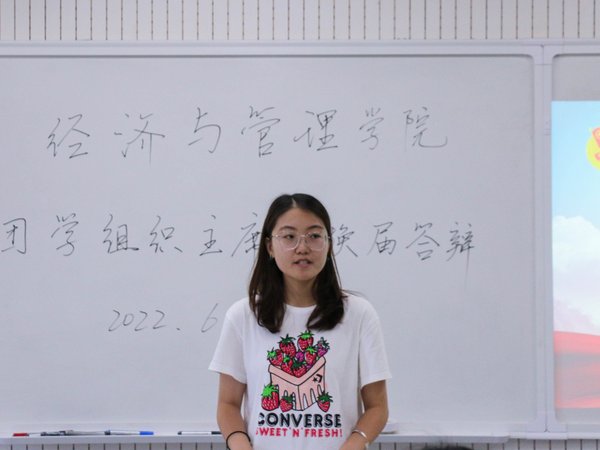 经济与管理学院
团学组织主席 换届答辩
2022.6
CONVERSE
SWEET 'N' FRESH!